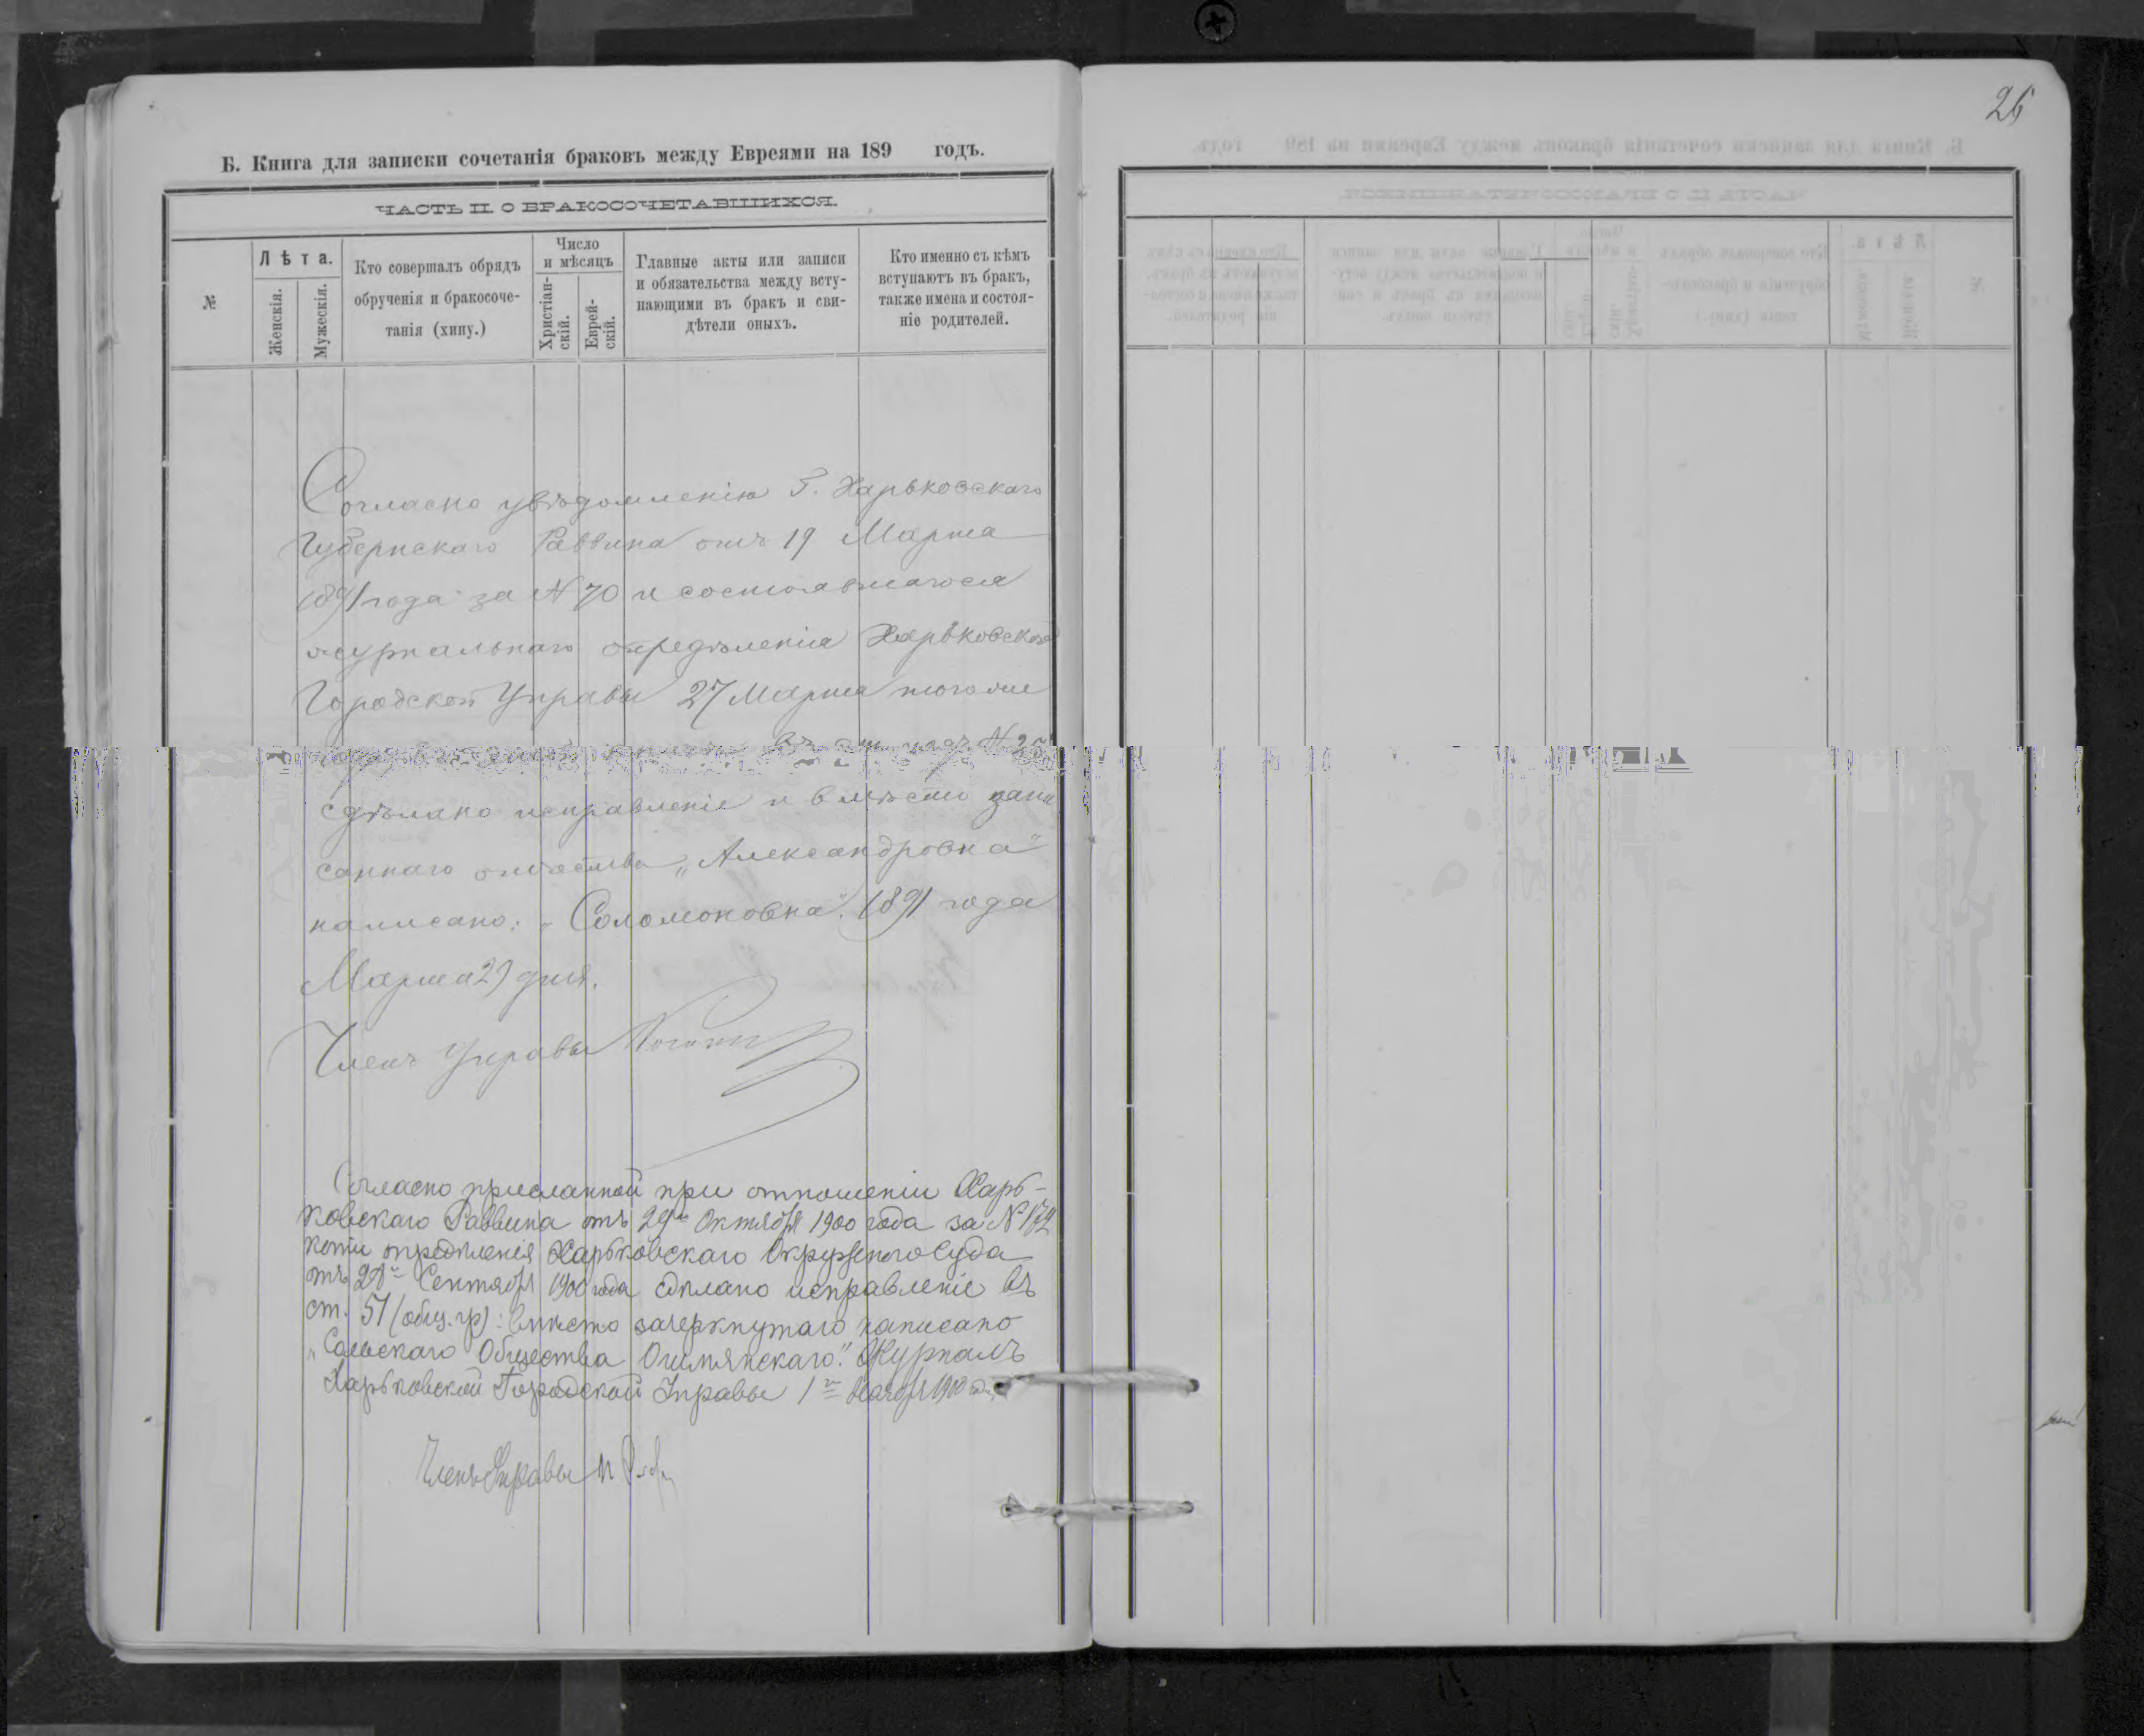 26
Б. Книга для записки сочетанія браковъ между Евреями на 189 годъ.
ЧАСТЬ II. О БРАКОСОЧЕТАВШИХСЯ.
№
Лѣта.
Женскія.
Мужескія.
Кто совершалъ обрядъ
обрученія и бракосоче-
танія (хипу.)
Число
и мѣсяцъ
Христіан-
скій.
Еврей-
скій.
Главные акты или записи
и обязательства между всту-
пающими въ бракъ и сви-
дѣтели оныхъ.
Кто именно съ кѣмъ
вступаютъ въ бракъ,
также имена и состоя-
ніе родителей.
Согласно увѣдомленію Г. Харьковскаго
Губернскаго Раввина отъ 19 Марта
1891 года за № 70 и состоявшагося
журнальнаго опредѣленія Харьковской
Городской Управы 27 Марта того же
въ ст. подъ № 25
сдѣлано исправленіе и вмѣсто запи
саннаго отчества „Александровна"
написано: „Соломоновна". 1891 года
Марта 29 дня.
Членъ Управы
Согласно присланной при отношеніи Харь-
ковскаго Раввина отъ 29го Октября 1900 года за № 172
копіи опредѣленія Харьковскаго Окружного Суда
отъ Сентября 1900 года сдѣлано исправленіе въ
ст. 51 (общ. гр): вмѣсто зачеркнутаго написано
„Сельскаго Общества Ошмянскаго". Журналъ
Харьковской Городской Управы 1го Ноября 1900 года
Членъ Управы